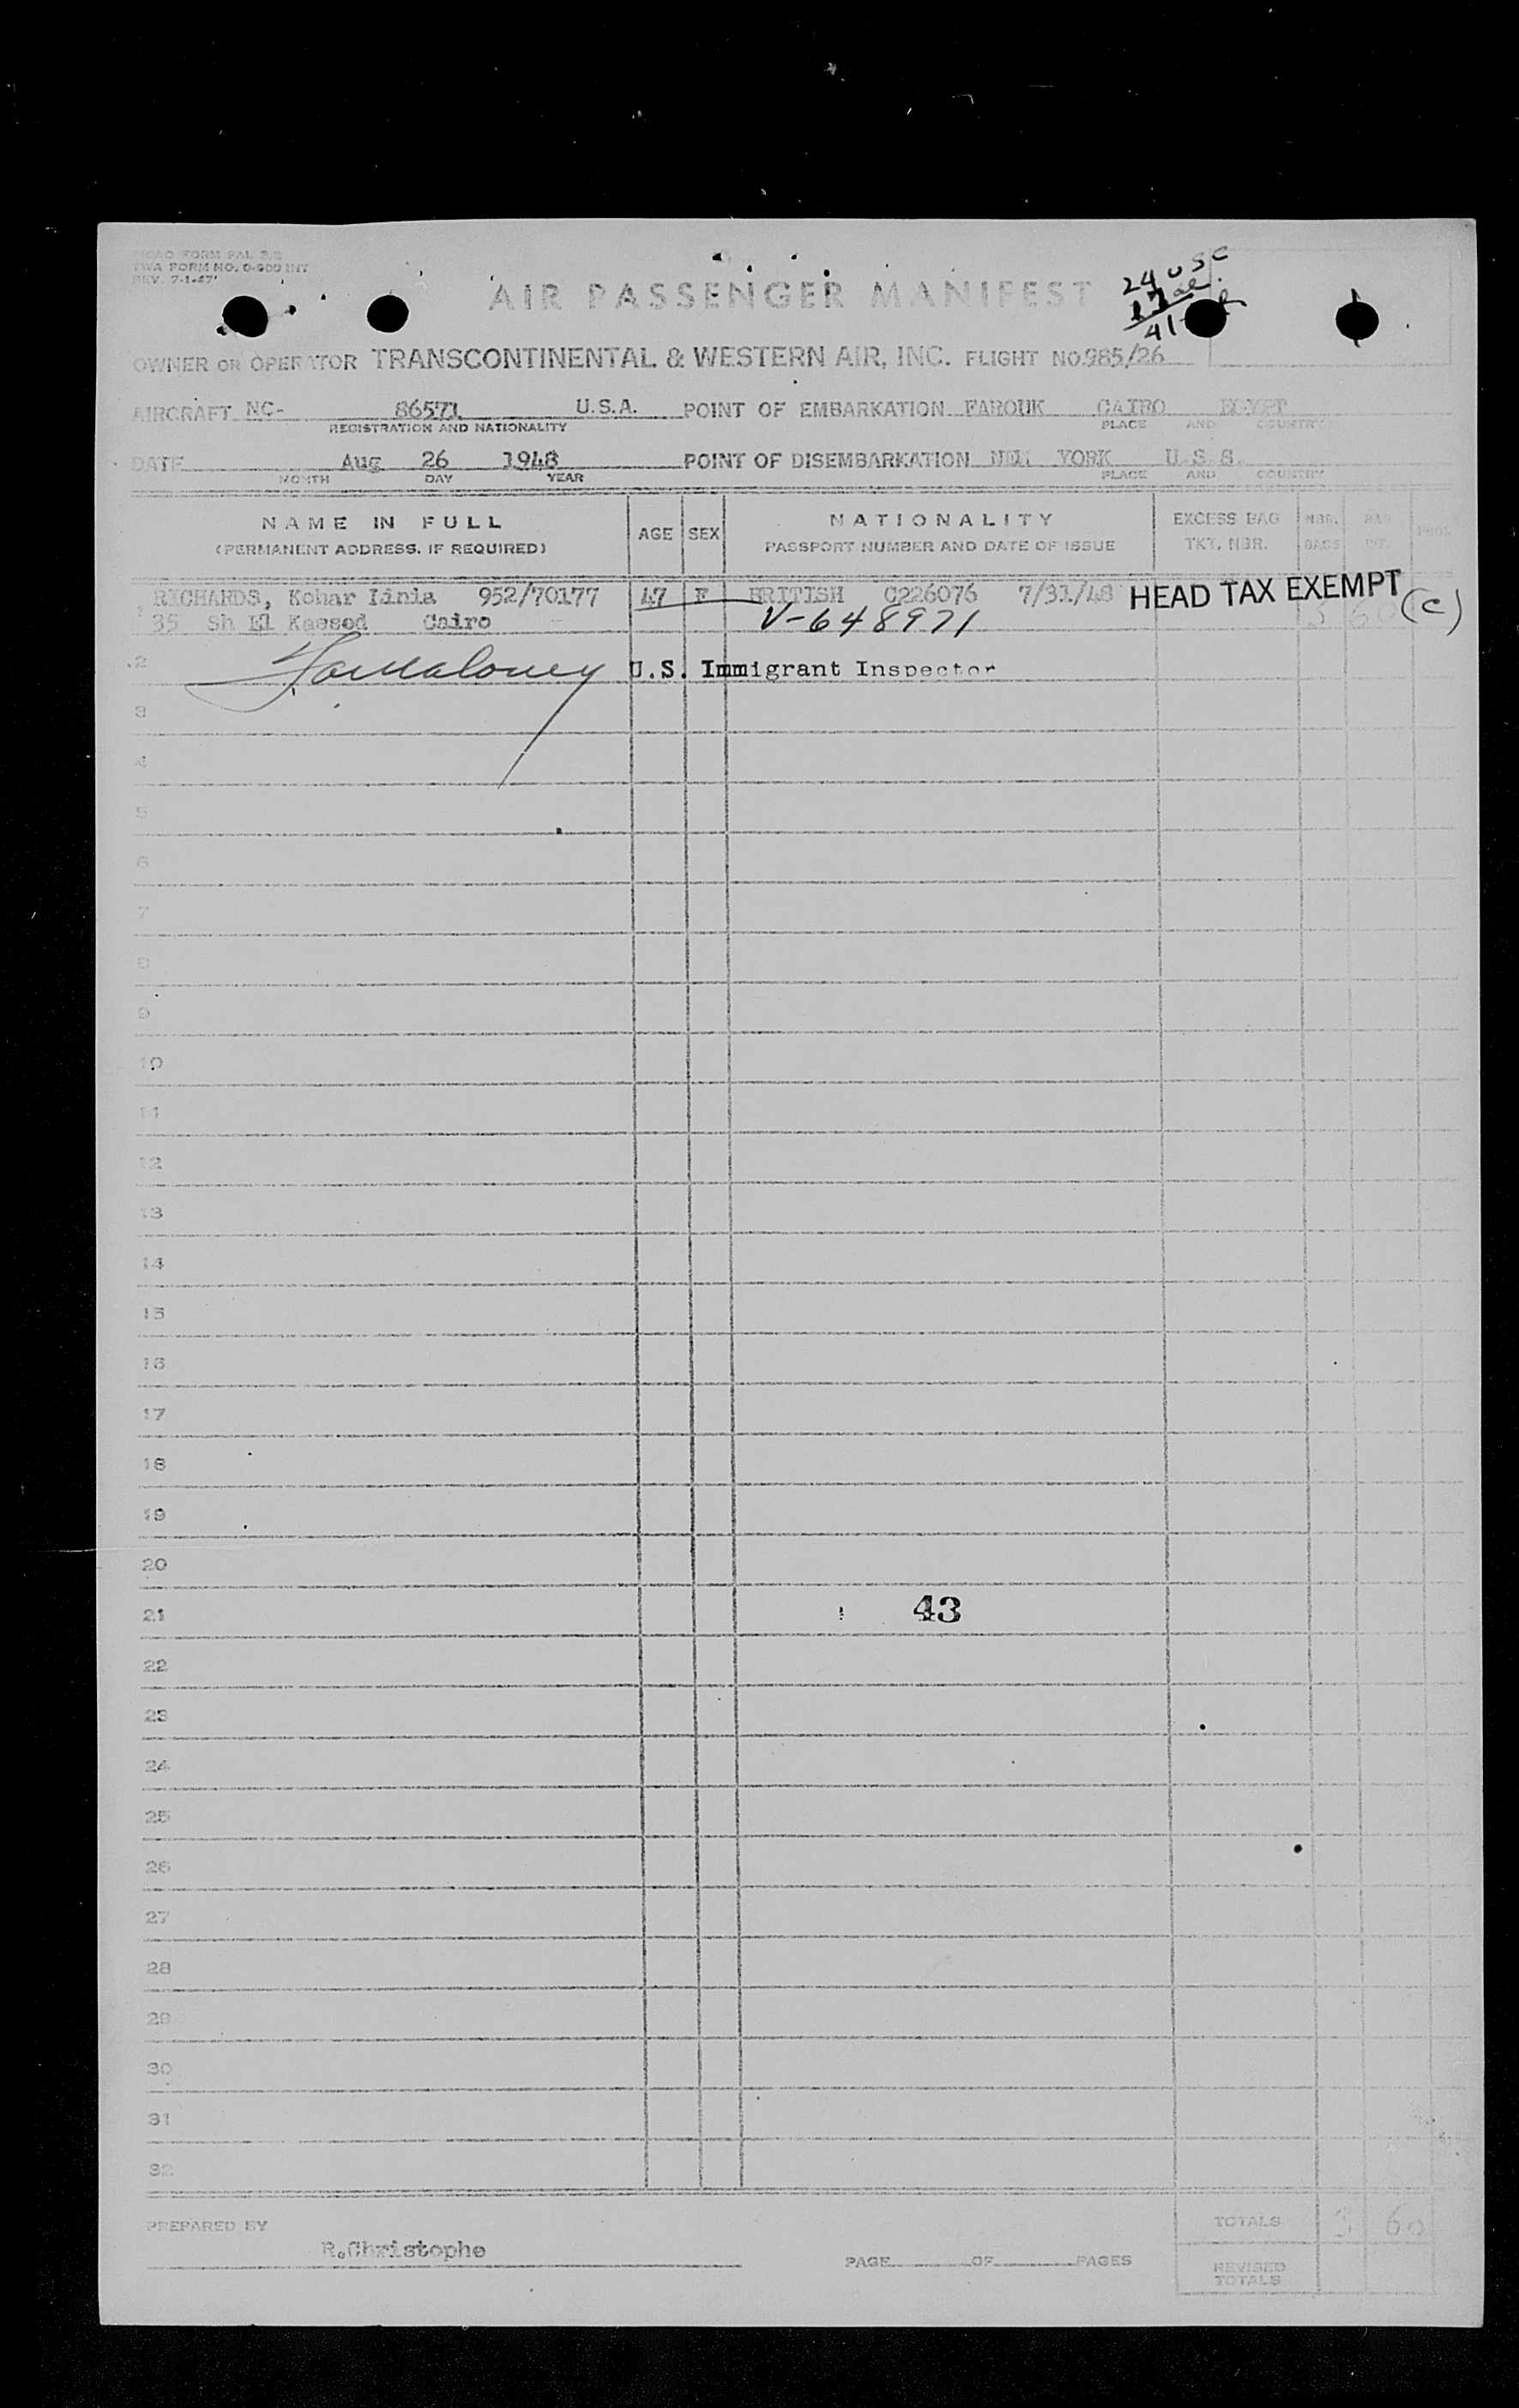 TWA FORM NO. 0-900 INT
REV. 7-1-47
24 USC
17 al.
41
AIR PASSENGER MANIFEST
OWNER OR OPERATOR TRANSCONTINENTAL & WESTERN AIR, INC. FLIGHT NO. 985/26
AIRCRAFT NC- 86571 U.S.A. POINT OF EMBARKATION FAROUK CAIRO EGYPT
REGISTRATION AND NATIONALITY PLACE AND COUNTRY
DATE Aug 26 1948 POINT OF DISEMBARKATION NEW YORK U.S.S.
MONTH DAY YEAR PLACE AND COUNTRY
NAME IN FULL AGE SEX NATIONALITY EXCESS BAG NBR. BAG
(PERMANENT ADDRESS, IF REQUIRED) PASSPORT NUMBER AND DATE OF ISSUE TKT. NBR. BAGS WT.
RICHARDS, Kohar Iinia 952/70177 47 F BRITISH C226076 7/31/48 HEAD TAX EXEMPT (C)
35 Sh El Kassed Cairo V-648971
2 U.S. Immigrant Inspector
3
4
5
6
7
8
9
10
11
12
13
14
15
16
17
18
19
20
21 43
22
23
24
25
26
27
28
29
30
31
32
PREPARED BY TOTALS 3 60
R.Christophe PAGE OF PAGES
REVISED
TOTALS